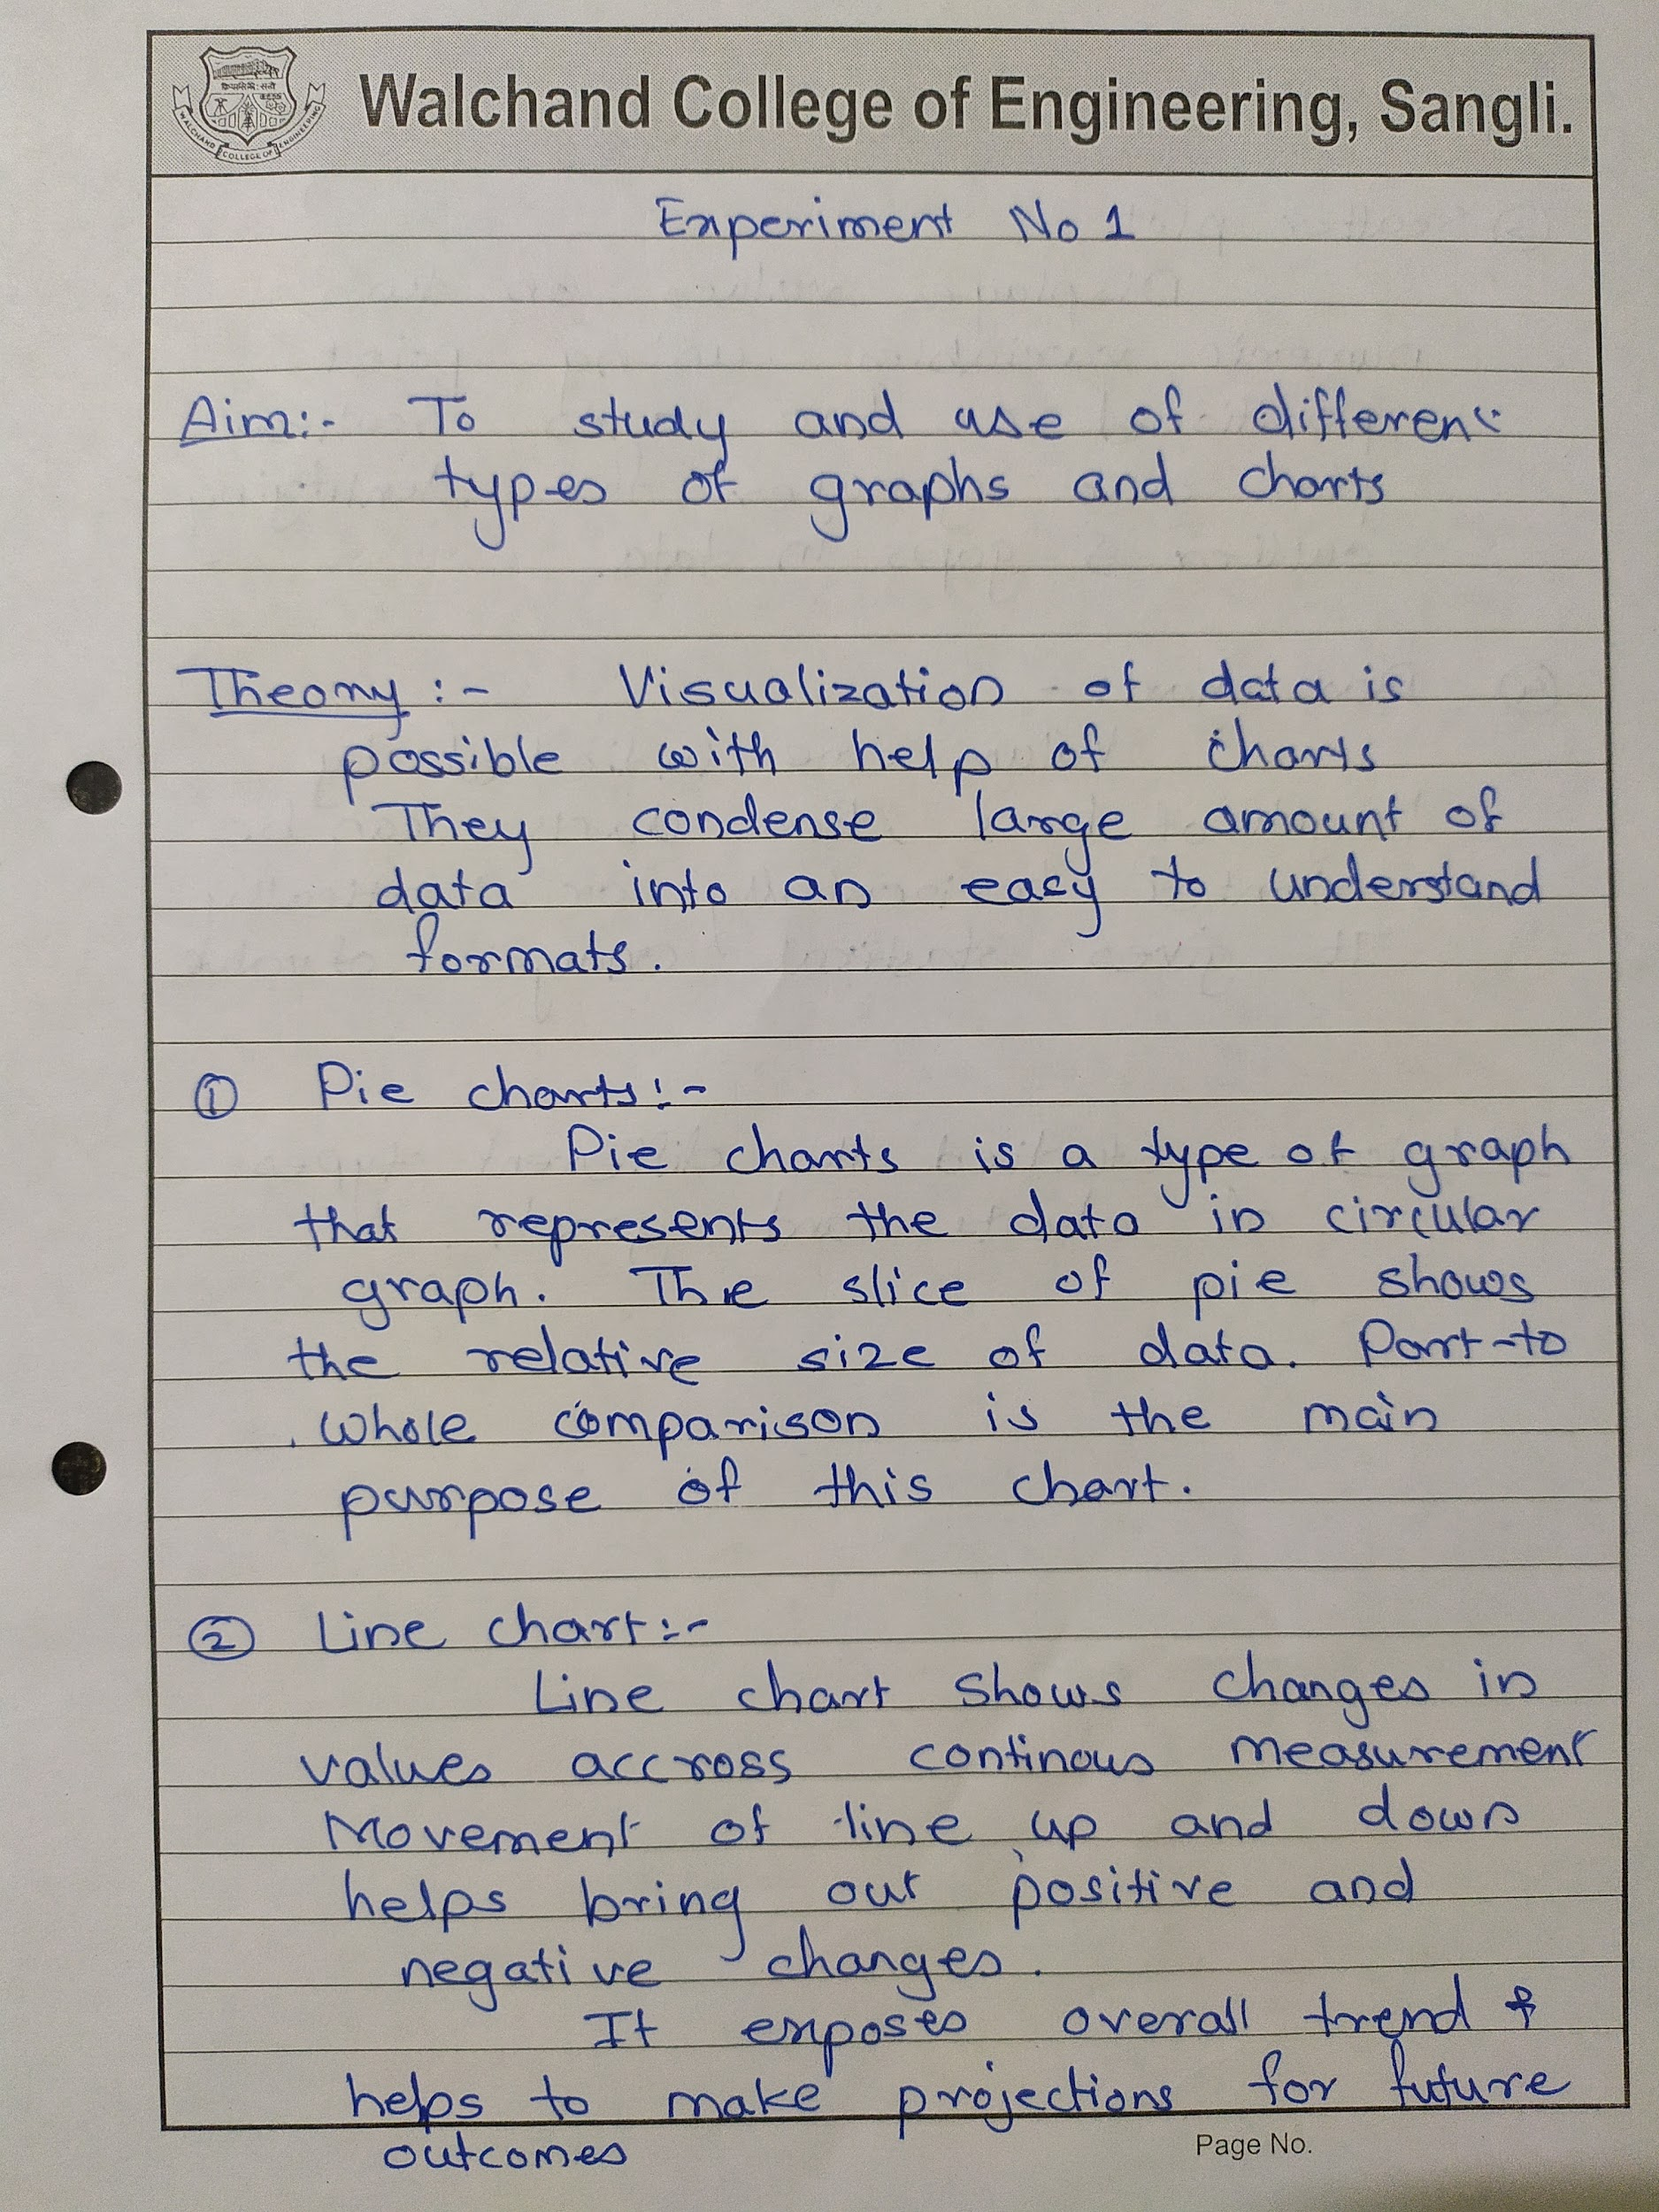 Walchand College of Engineering, Sangli.
WALCHAND COLLEGE OF ENGINEERING
Experiment No 1
Aim:- To study and use of different
types of graphs and charts
Theory :- Visualization of data is
possible with help of charts
They condense large amount of
data into an easy to understand
formats.
① Pie charts:-
Pie charts is a type of graph
that represents the data in circular
graph. The slice of pie shows
the relative size of data. Part-to
whole comparison is the main
purpose of this chart.
② Line chart:-
Line chart shows changes in
values accross continous measurement
Movement of line up and down
helps bring out positive and
negative changes.
It exposes overall trend &
helps to make projections for future
outcomes
Page No.